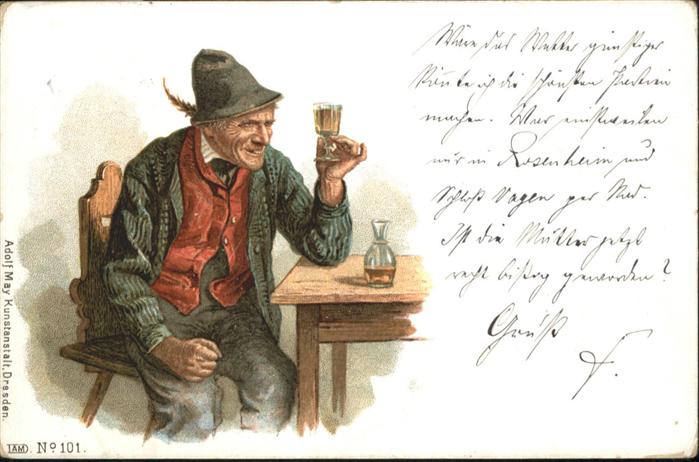 Wäre das Wetter günstiger
könnte ich die schönsten Partien
machen. War einstweilen
nur in Rosenheim und
Schloß Vagen per Rad.
Ist die Mutter jetzt
recht bissig geworden?
Gruß
F.
Adolf May Kunstanstalt, Dresden.
AM. No 101.